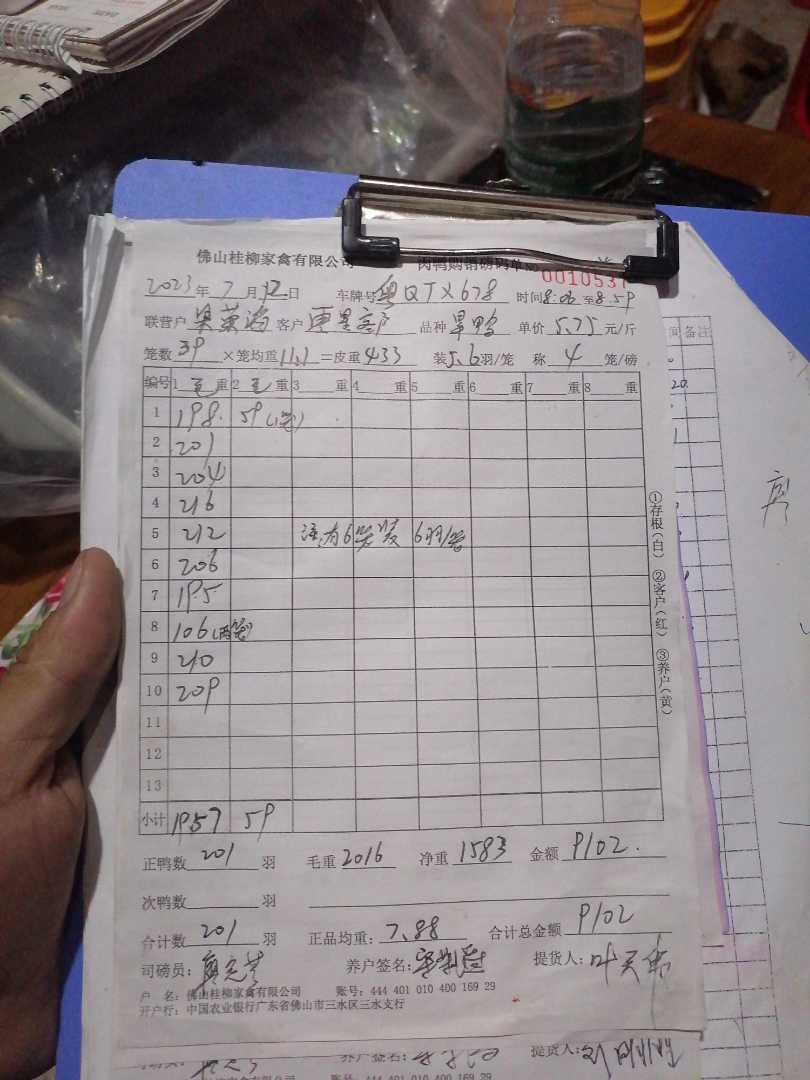 佛山桂柳家禽有限公司 肉鸭购销磅码单
0010537
2023年 7月 12日 车牌号 粤QTX678 时间 8:06 至 8:59
联营户 客户 品种 旱鸭 单价 5.75 元/斤
笼数 39 ×笼均重 11.1 =皮重 433 装 5.6 羽/笼 称 4 笼/磅
编号 1 毛 重 2 毛 重 3 重 4 重 5 重 6 重 7 重 8 重
1 198. 59(1笼)
2 201
3 204
4 216
5 212 注:有6笼装 6羽/笼
6 206
7 195
8 106(两笼)
9 210
10 209
11
12
13
小计 1957 59
①存根(白) ②客户(红) ③养户(黄)
正鸭数 201 羽 毛重 2016 净重 1583 金额 9102.
次鸭数 羽
合计数 201 羽 正品均重: 7.88 合计总金额 9102
司磅员: 养户签名: 提货人:
户 名: 佛山桂柳家禽有限公司 账号: 444 401 010 400 169 29
开户行: 中国农业银行广东省佛山市三水区三水支行
养户签名: 提货人:
家禽有限公司 账号: 444 401 010 400 169 29
备注
20.